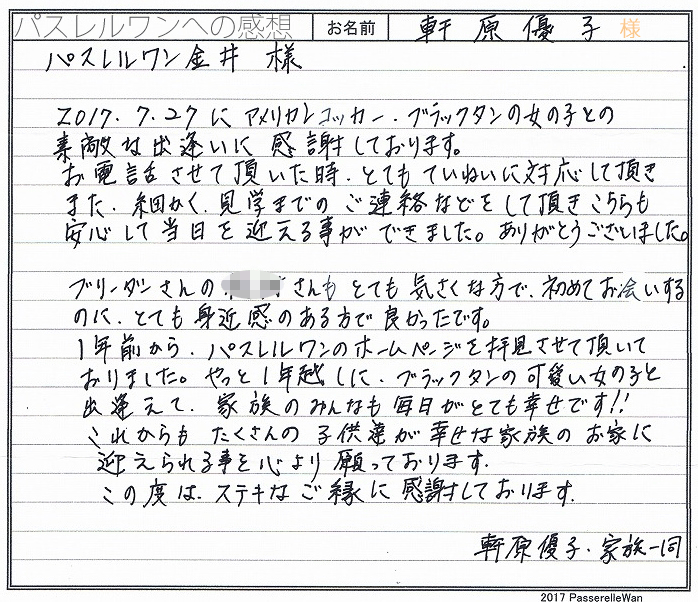 パスレルワンへの感想 お名前 軒原優子 様
パスレルワン金井 様
2017.7.27に アメリカンコッカー.ブラックタンの女の子との
素敵な出逢いに感謝しております。
お電話をさせて頂いた時.とてもていねいに対応して頂き
また.細かく.見学までのご連絡などをして頂きこちらも
安心して当日を迎える事ができました。ありがとうございました。
ブリーダーさんの さんもとても気さくな方で.初めてお会いする
のに.とても身近感のある方で良かったです。
1年前から.パスレルワンのホームページを拝見させて頂いて
おりました。やっと1年越しに.ブラックタンの可愛い女の子と
出逢えて.家族のみんなも毎日がとても幸せです!!
これからもたくさんの子供達が幸せな家族のお家に
迎えられる事を心より願っております.
この度は.ステキなご縁に感謝しております.
軒原優子.家族一同
2017 PasserelleWan